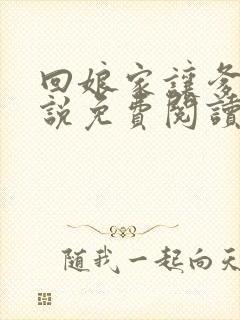 回娘家讓爹
說免費閱讀
随我一起向天